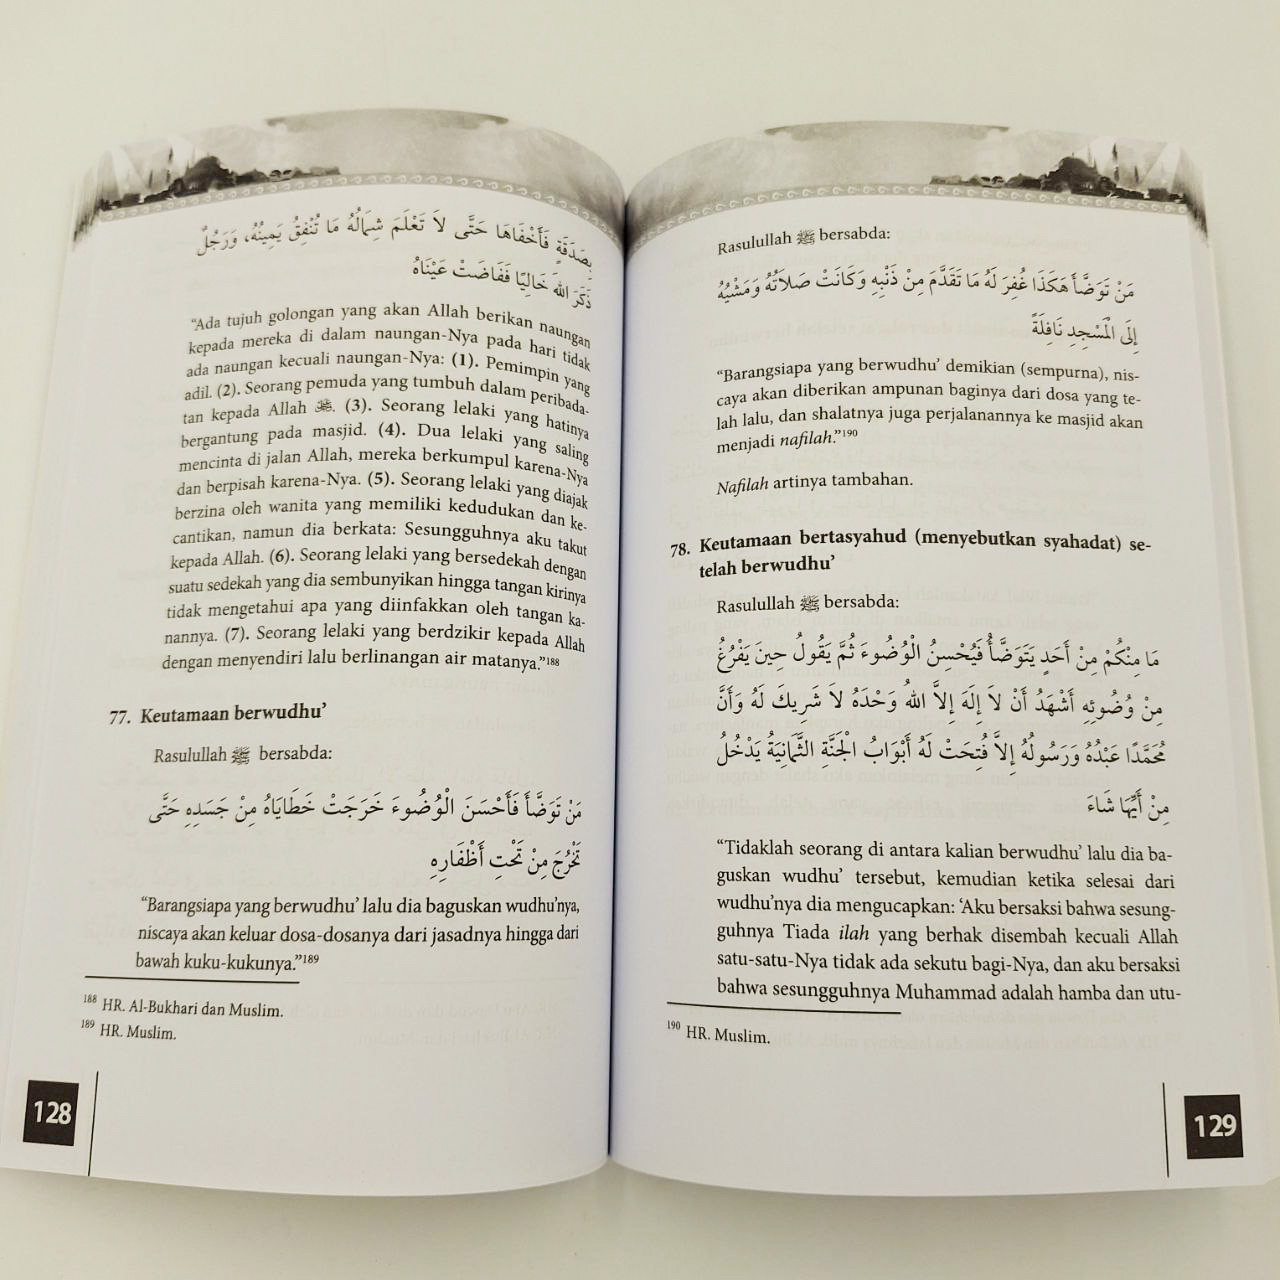 بِصَدَقَةٍ فَأَخْفَاهَا حَتَّى لاَ تَعْلَمَ شِمَالُهُ مَا تُنْفِقُ يَمِينُهُ، وَرَجُلٌ
ذَكَرَ اللهَ خَالِيًا فَفَاضَتْ عَيْنَاهُ
“Ada tujuh golongan yang akan Allah berikan naungan
kepada mereka di dalam naungan-Nya pada hari tidak
ada naungan kecuali naungan-Nya: (1). Pemimpin yang
adil. (2). Seorang pemuda yang tumbuh dalam peribada-
tan kepada Allah ﷻ. (3). Seorang lelaki yang hatinya
bergantung pada masjid. (4). Dua lelaki yang saling
mencinta di jalan Allah, mereka berkumpul karena-Nya
dan berpisah karena-Nya. (5). Seorang lelaki yang diajak
berzina oleh wanita yang memiliki kedudukan dan ke-
cantikan, namun dia berkata: Sesungguhnya aku takut
kepada Allah. (6). Seorang lelaki yang bersedekah dengan
suatu sedekah yang dia sembunyikan hingga tangan kirinya
tidak mengetahui apa yang diinfakkan oleh tangan ka-
nannya. (7). Seorang lelaki yang berdzikir kepada Allah
dengan menyendiri lalu berlinangan air matanya.”188
77. Keutamaan berwudhu’
Rasulullah ﷺ bersabda:
مَنْ تَوَضَّأَ فَأَحْسَنَ الْوُضُوءَ خَرَجَتْ خَطَايَاهُ مِنْ جَسَدِهِ حَتَّى
تَخْرُجَ مِنْ تَحْتِ أَظْفَارِهِ
“Barangsiapa yang berwudhu’ lalu dia baguskan wudhu’nya,
niscaya akan keluar dosa-dosanya dari jasadnya hingga dari
bawah kuku-kukunya.”189
188 HR. Al-Bukhari dan Muslim.
189 HR. Muslim.
128
Rasulullah ﷺ bersabda:
مَنْ تَوَضَّأَ هَكَذَا غُفِرَ لَهُ مَا تَقَدَّمَ مِنْ ذَنْبِهِ وَكَانَتْ صَلاَتُهُ وَمَشْيُهُ
إِلَى الْمَسْجِدِ نَافِلَةً
“Barangsiapa yang berwudhu’ demikian (sempurna), nis-
caya akan diberikan ampunan baginya dari dosa yang te-
lah lalu, dan shalatnya juga perjalanannya ke masjid akan
menjadi nafilah.”190
Nafilah artinya tambahan.
78. Keutamaan bertasyahud (menyebutkan syahadat) se-
telah berwudhu’
Rasulullah ﷺ bersabda:
مَا مِنْكُمْ مِنْ أَحَدٍ يَتَوَضَّأُ فَيُحْسِنُ الْوُضُوءَ ثُمَّ يَقُولُ حِينَ يَفْرُغُ
مِنْ وُضُوئِهِ أَشْهَدُ أَنْ لاَ إِلَهَ إِلاَّ اللهُ وَحْدَهُ لاَ شَرِيكَ لَهُ وَأَنَّ
مُحَمَّدًا عَبْدُهُ وَرَسُولُهُ إِلاَّ فُتِحَتْ لَهُ أَبْوَابُ الْجَنَّةِ الثَّمَانِيَةُ يَدْخُلُ
مِنْ أَيِّهَا شَاءَ
“Tidaklah seorang di antara kalian berwudhu’ lalu dia ba-
guskan wudhu’ tersebut, kemudian ketika selesai dari
wudhu’nya dia mengucapkan: ‘Aku bersaksi bahwa sesung-
guhnya Tiada ilah yang berhak disembah kecuali Allah
satu-satu-Nya tidak ada sekutu bagi-Nya, dan aku bersaksi
bahwa sesungguhnya Muhammad adalah hamba dan utu-
190 HR. Muslim.
129